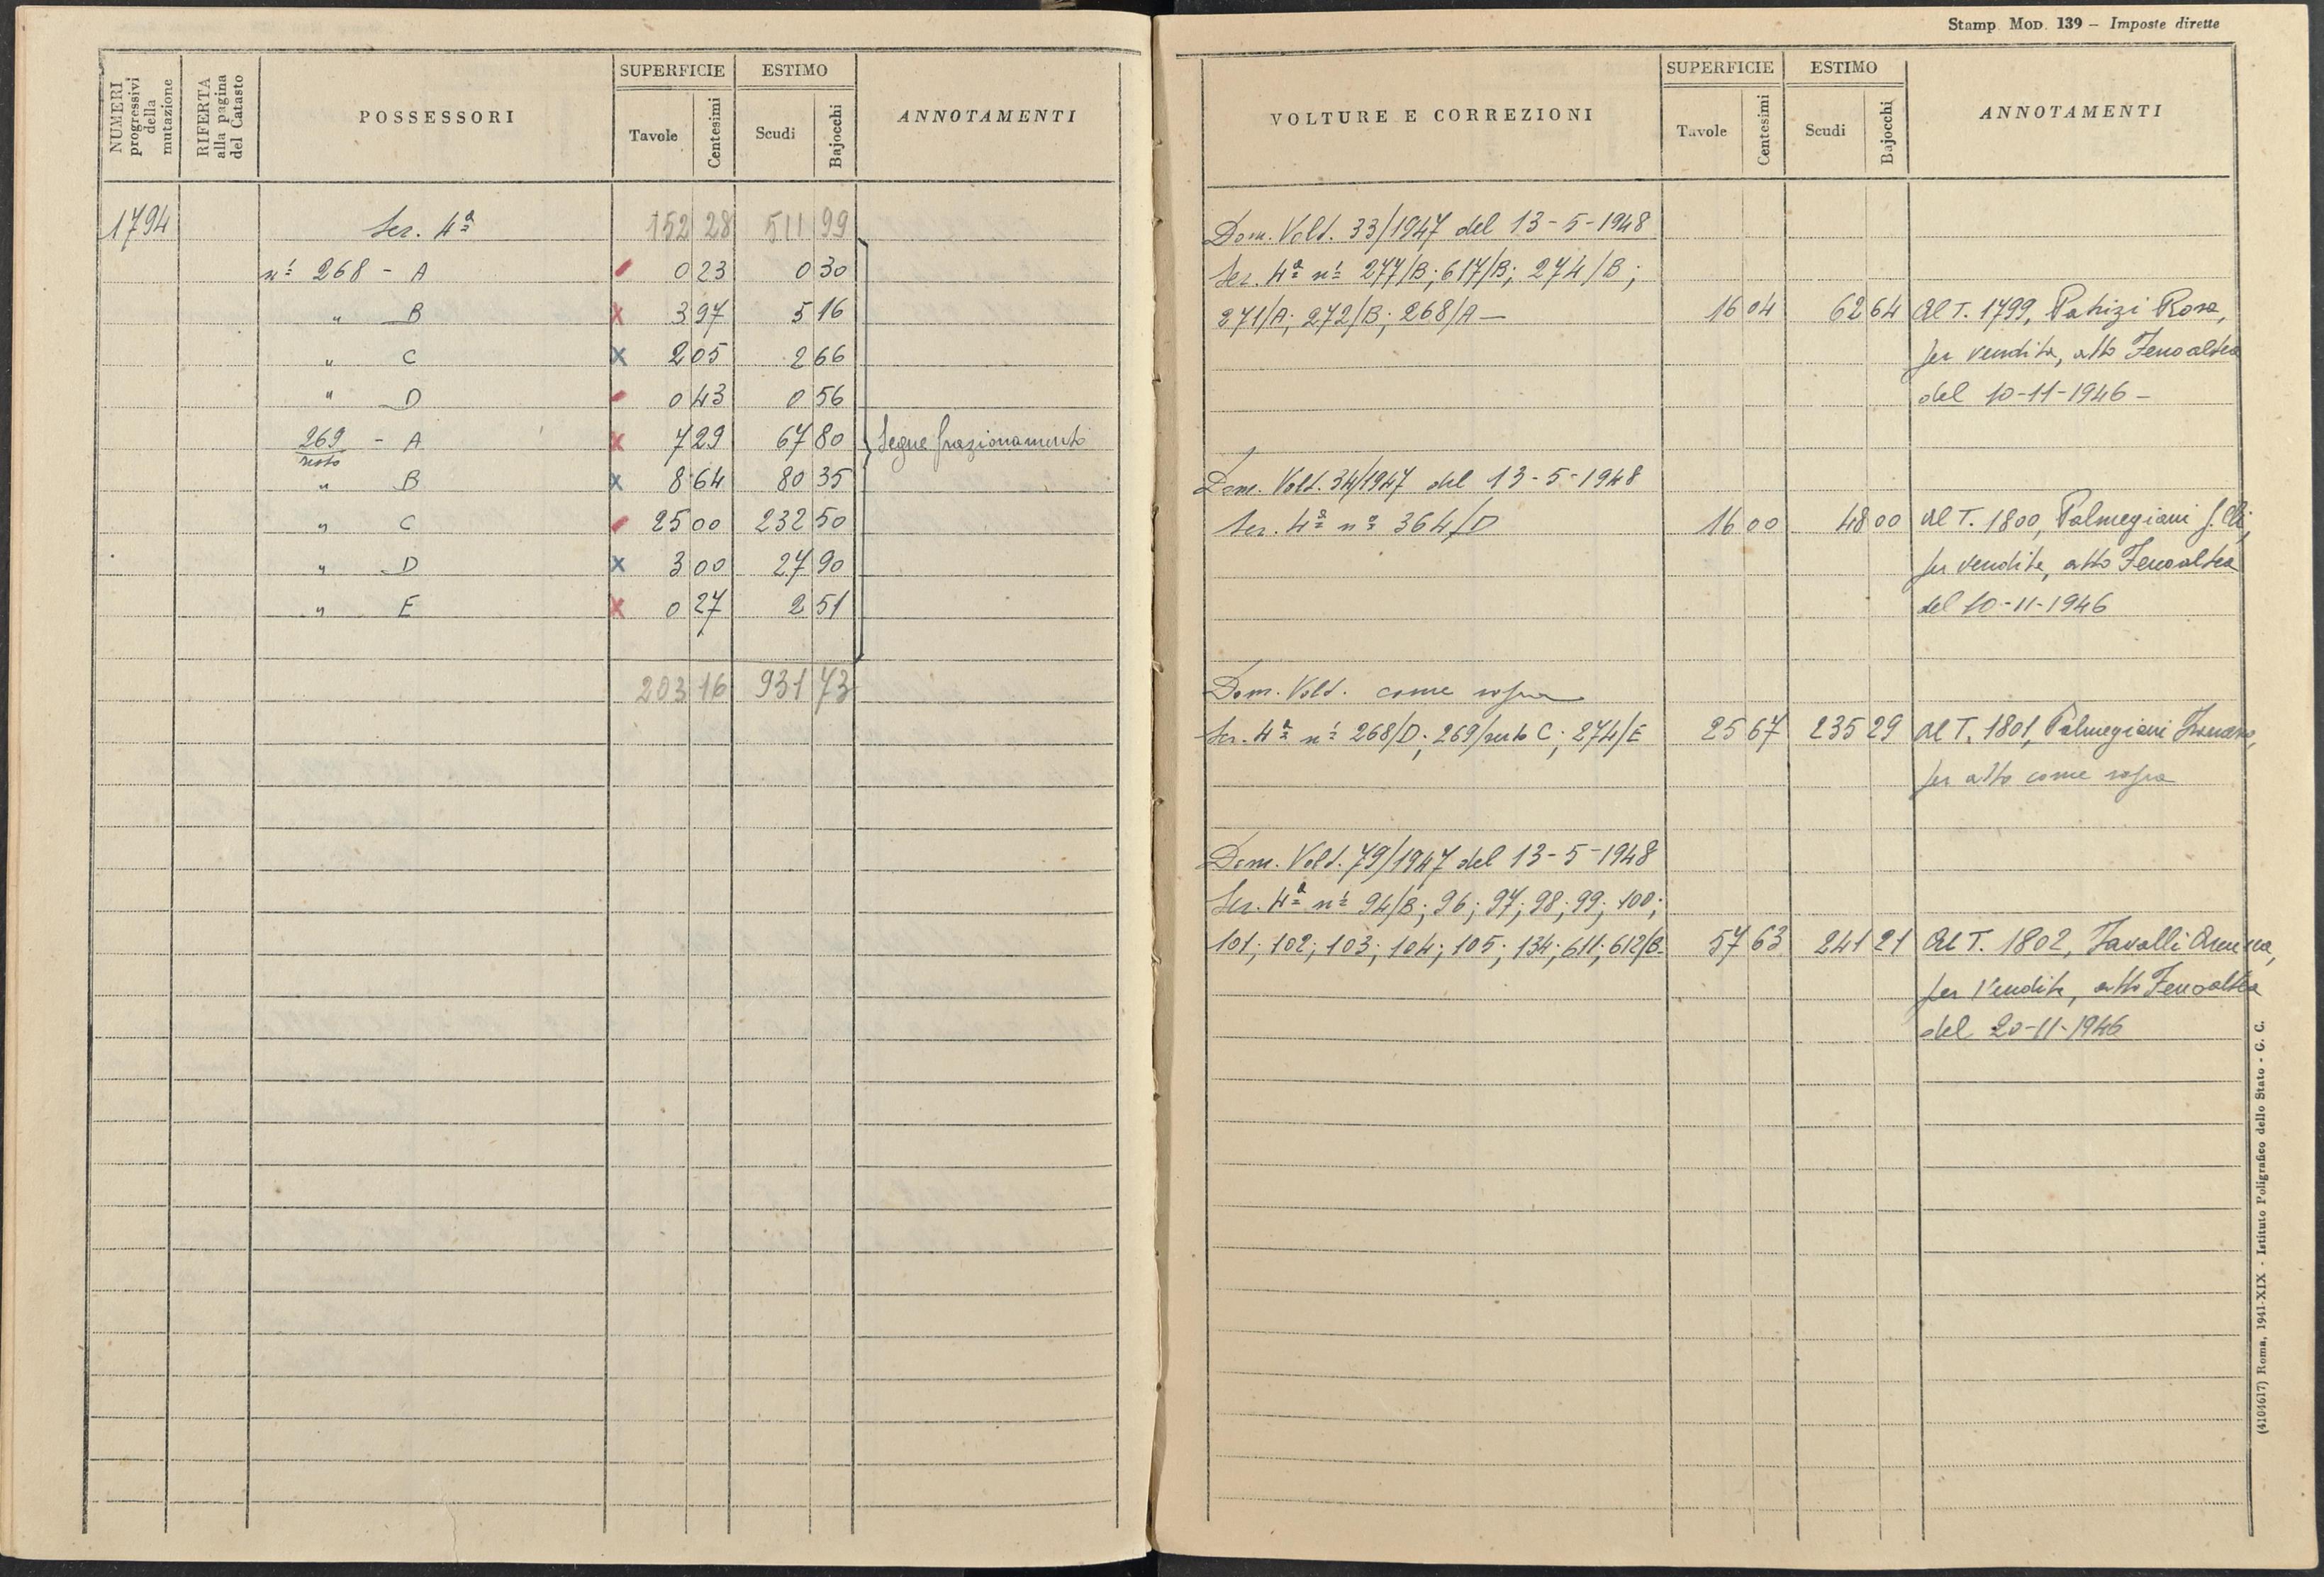 NUMERI progressivi della mutazione
RIFERTA alla pagina del Catasto
POSSESSORI
SUPERFICIE
Tavole Centesimi
ESTIMO
Scudi Bajocchi
ANNOTAMENTI
1794 Sez. 4ª 152 28 511 99
nⁱ 268 - A 0 23 0 30
" B 3 97 5 16
" C 2 05 2 66
" D 0 43 0 56
269/resto - A 7 29 67 80 Segue frazionamento
" B 8 64 80 35
" C 25 00 232 50
" D 3 00 27 90
" E 0 27 2 51
203 16 931 73
Stamp Mod. 139 – Imposte dirette
VOLTURE E CORREZIONI
SUPERFICIE
Tavole Centesimi
ESTIMO
Scudi Bajocchi
ANNOTAMENTI
Dom. Volt. 33/1947 del 13-5-1948
Sez. 4ª nⁱ 277/B; 617/B; 274/B;
271/A; 272/B; 268/A – 16 04 62 64 Al T. 1799, Patrizi Rosa,
per vendita, atto Fenoaltea
del 10-11-1946 –
Dom. Volt. 34/1947 del 13-5-1948
Sez. 4ª nº 364/D 16 00 48 00 Al T. 1800, Palmegiani
per vendita, atto Fenoaltea
del 10-11-1946
Dom. Volt. come sopra
Sez. 4ª nⁱ 268/D; 269/resto C; 274/E 25 67 235 29 Al T. 1801, Palmegiani
per atto come sopra
Dom. Volt. 79/1947 del 13-5-1948
Sez. 4ª nⁱ 94/B; 96; 97; 98; 99; 100;
101; 102; 103; 104; 105; 134; 611; 612/B. 57 63 241 21 Al T. 1802,
per Vendita, atto Fenoaltea
del 20-11-1946
(4104617) Roma, 1941-XIX - Istituto Poligrafico dello Stato - G. C.